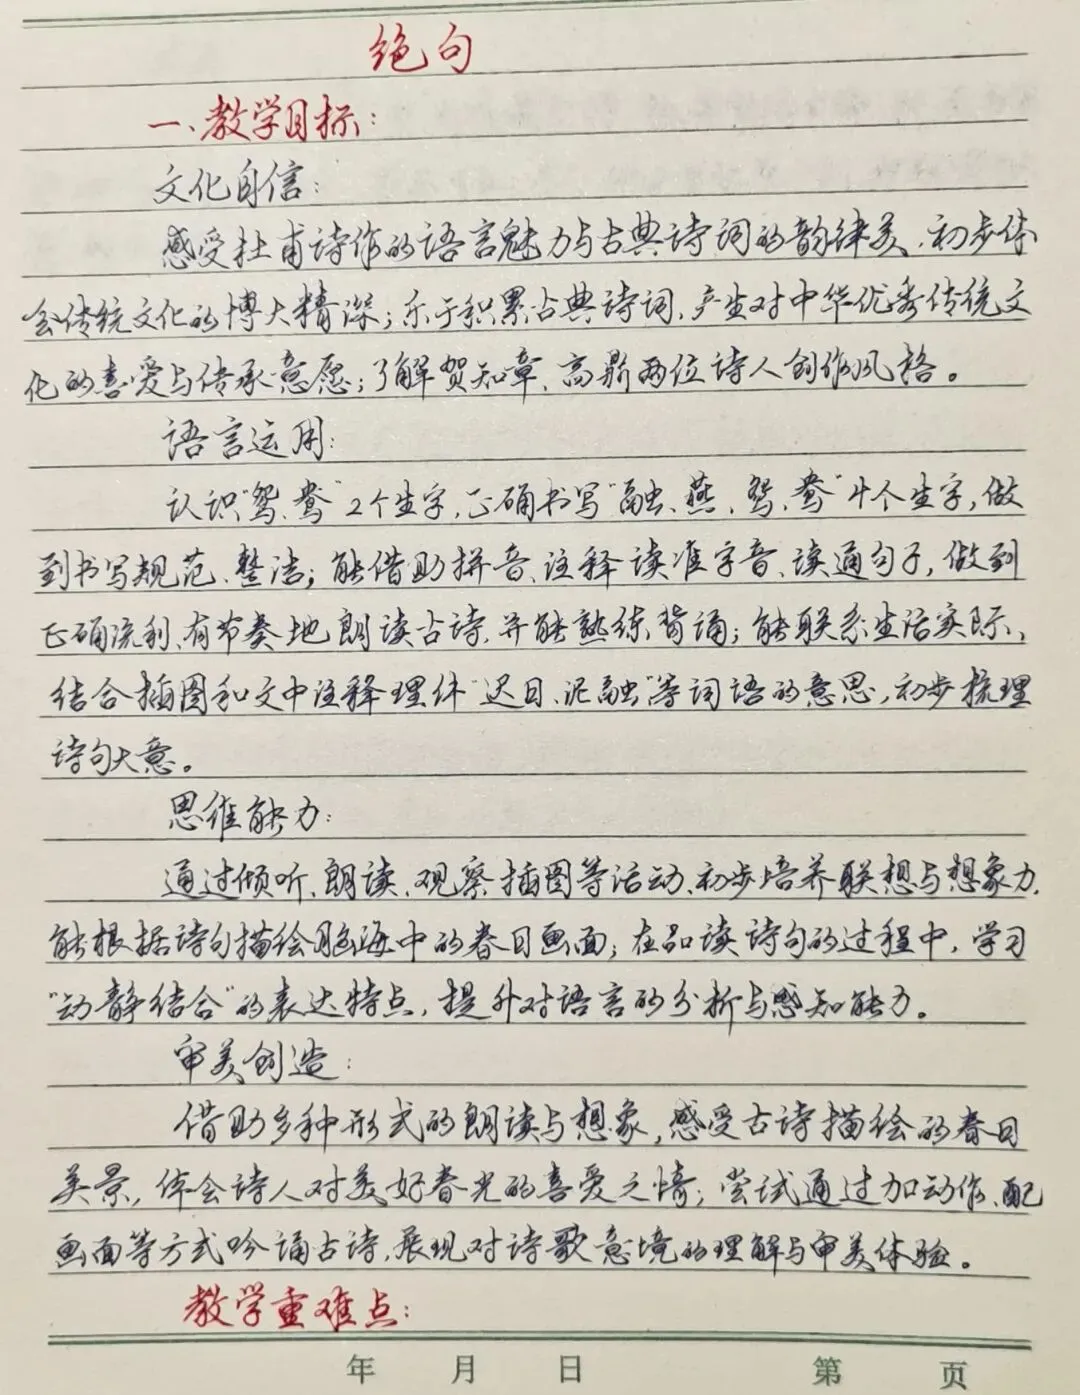 绝句
一、教学目标：
文化自信：
感受杜甫诗作的语言魅力与古典诗词的韵律美，初步体
会传统文化的博大精深；乐于积累古典诗词，产生对中华优秀传统文
化的喜爱与传承意愿；了解贺知章、高鼎两位诗人创作风格。
语言运用：
认识“鸳、鸯”2个生字，正确书写“融、燕、鸳、鸯”4个生字，做
到书写规范、整洁；能借助拼音、注释读准字音、读通句子，做到
正确流利、有节奏地朗读古诗，并能熟练背诵；能联系生活实际，
结合插图和文中注释理体“迟日、泥融”等词语的意思，初步梳理
诗句大意。
思维能力：
通过倾听、朗读、观察插图等活动，初步培养联想与想象力，
能根据诗句描绘脑海中的春日画面；在品读诗句的过程中，学习
“动静结合”的表达特点，提升对语言的分析与感知能力。
审美创造：
借助多种形式的朗读与想象，感受古诗描绘的春日
美景，体会诗人对美好春光的喜爱之情；尝试通过加动作、配
画面等方式吟诵古诗，展现对诗歌意境的理解与审美体验。
教学重难点：
年 月 日 第 页